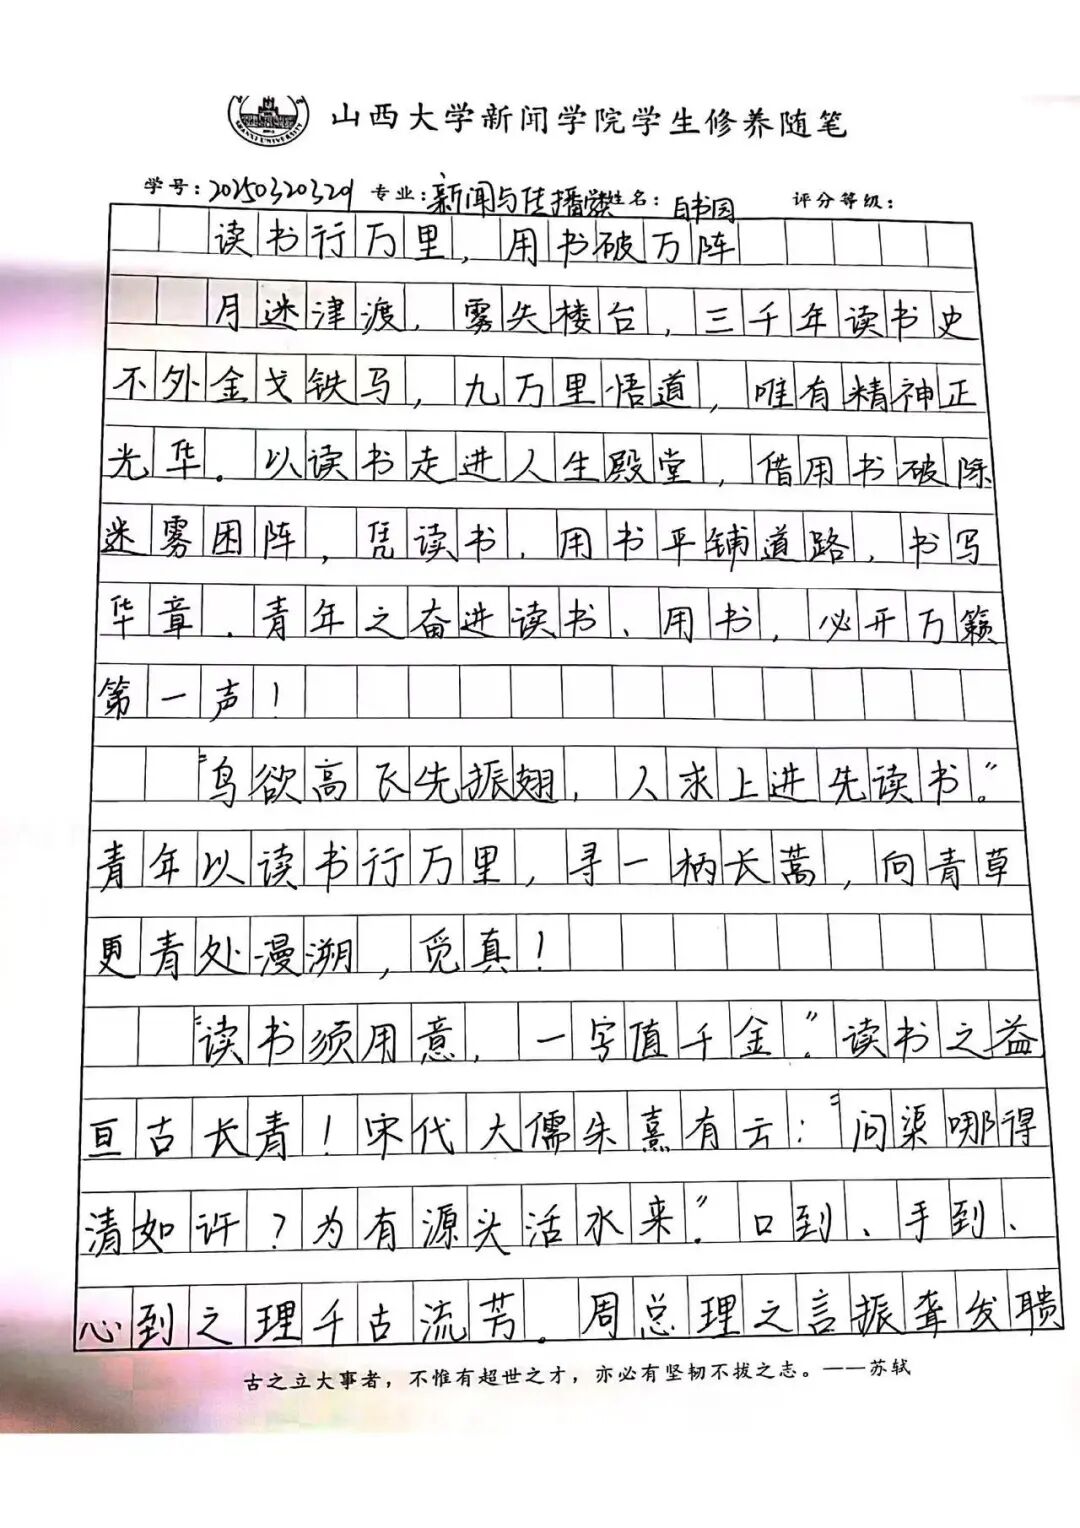 山西大学新闻学院学生修养随笔
学号：20250320329 专业：新闻与传播学类 姓名：白书园 评分等级：
读书行万里，用书破万阵
月迷津渡，雾失楼台，三千年读书史
不外金戈铁马，九万里悟道，唯有精神正
光华。以读书走进人生殿堂，借用书破除
迷雾困阵，凭读书、用书平铺道路，书写
华章。青年之奋进读书、用书，必开万籁
第一声！
“鸟欲高飞先振翅，人求上进先读书。”
青年以读书行万里，寻一柄长蒿，向青草
更青处漫溯，觅真！
“读书须用意，一字值千金。”读书之益
亘古长青！宋代大儒朱熹有云：“问渠哪得
清如许？为有源头活水来。”口到、手到、
心到之理千古流芳。周总理之言振聋发聩
古之立大事者，不惟有超世之才，亦必有坚韧不拔之志。——苏轼